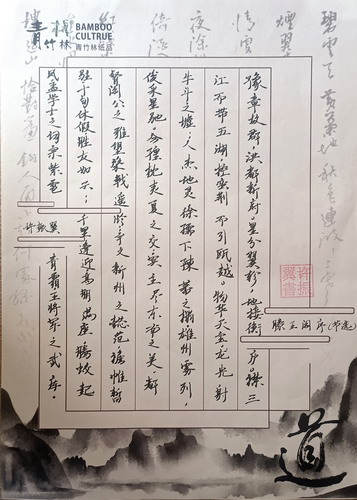 豫章故郡,洪都新府。星分翼轸,地接衡庐。襟三
江而带五湖,控蛮荆而引瓯越。物华天宝,龙光射
牛斗之墟;人杰地灵,徐孺下陈蕃之榻。雄州雾列,
俊采星驰,台隍枕夷夏之交,宾主尽东南之美。都
督阎公之雅望,棨戟遥临;宇文新州之懿范,襜帷暂
驻。十旬休假,胜友如云;千里逢迎,高朋满座。腾蛟起
凤,孟学士之词宗;紫电
青霜,王将军之武库。
滕王阁序(节选)
许振翼
许振翼书
道
青竹林
BAMBOO
CULTRUE
青竹林纸品
碧云天 黄叶地 秋色连波